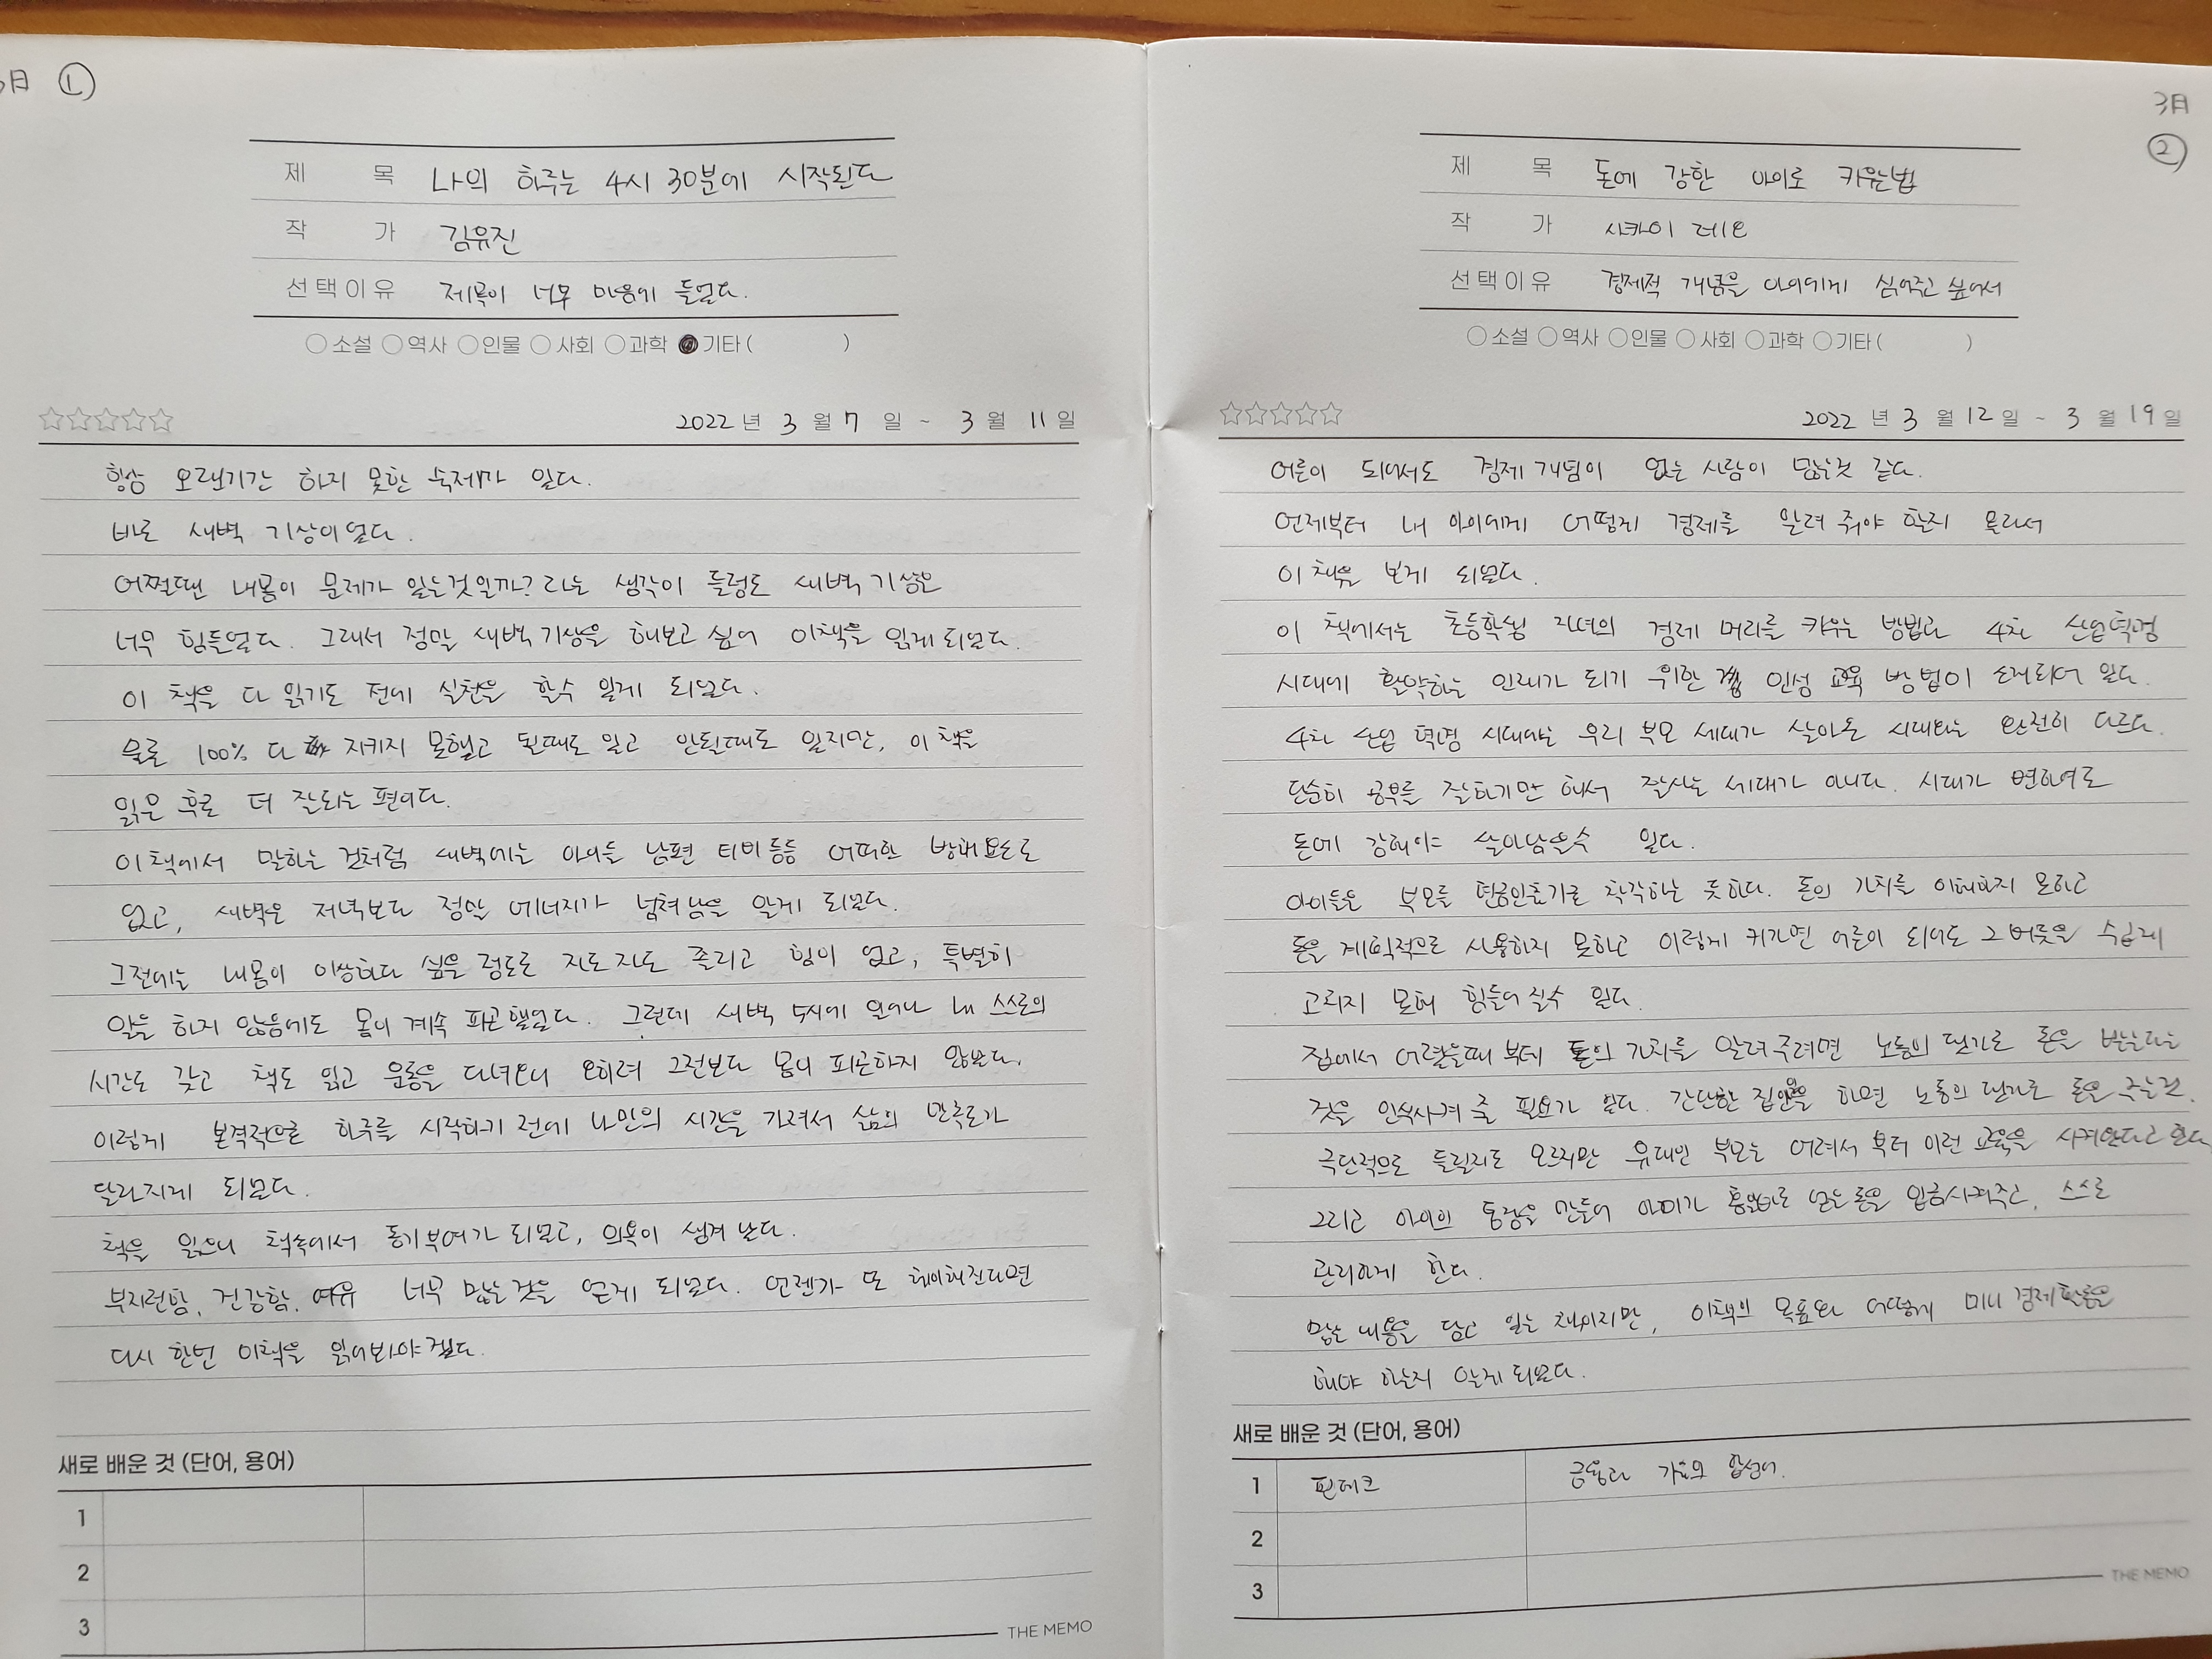 3月 ①
제 목 나의 하루는 4시 30분에 시작된다
작 가 김유진
선택이유 제목이 너무 마음에 들었다.
○소설 ○역사 ○인물 ○사회 ○과학 ●기타 ( )
☆☆☆☆☆ 2022 년 3 월 7 일 ~ 3 월 11 일
항상 오랜기간 하지 못한 숙제가 있다.
바로 새벽 기상이었다.
어쩔땐 내몸이 문제가 있는것일까? 라는 생각이 들정도 새벽 기상은
너무 힘들었다. 그래서 정말 새벽기상을 해보고 싶어 이책을 읽게 되었다.
이 책을 다 읽기도 전에 실천을 할수 있게 되었다.
물론 100% 다 지키지 못했고 될때도 있고 안될때도 있지만, 이 책을
읽은 후로 더 잘되는 편이다.
이책에서 말하는 것처럼 새벽에는 아이들 남편 티비 등등 어떠한 방해요소도
없고, 새벽은 저녁보다 정말 에너지가 넘쳐남을 알게 되었다.
그전에는 내몸이 이상하다 싶을 정도로 자도자도 졸리고 힘이 없고, 특별히
일을 하지 않음에도 몸이 계속 피곤했었다. 그런데 새벽 5시에 일어나 내 스스로의
시간도 갖고 책도 읽고 운동을 다녀오니 오히려 그전보다 몸이 피곤하지 않았다.
이렇게 본격적으로 하루를 시작하기 전에 나만의 시간을 가져서 삶의 만족도가
달라지게 되었다.
책을 읽으니 책속에서 동기부여가 되었고, 의욕이 생겨 났다.
부지런함, 건강함, 여유 너무 많은것을 얻게 되었다. 언젠가 또 해이해진다면
다시 한번 이책을 읽어봐야겠다.
새로 배운 것 (단어, 용어)
1
2
3
THE MEMO
3月
②
제 목 돈에 강한 아이로 키우는법
작 가 사카이 레오
선택이유 경제적 개념을 아이에게 심어주고 싶어서
○소설 ○역사 ○인물 ○사회 ○과학 ○기타 ( )
☆☆☆☆☆ 2022 년 3 월 12 일 ~ 3 월 19 일
어른이 되어서도 경제개념이 없는 사람이 많은것 같다.
언제부터 내 아이에게 어떻게 경제를 알려 줘야 할지 몰라서
이 책을 보게 되었다.
이 책에서는 초등학생 자녀의 경제 머리를 키우는 방법과 4차 산업혁명
시대에 활약하는 인재가 되기 위한 인성 교육 방법이 소개되어 있다.
4차 산업 혁명 시대에는 우리 부모 세대가 살아온 시대와는 완전히 다르다.
단순히 공부를 잘하기만 해서 잘사는 세대가 아니다. 시대가 변하여도
돈에 강해야 살아남을수 있다.
아이들은 부모를 현금인출기로 착각하는 듯하다. 돈의 가치를 이해하지 못하고
돈을 계획적으로 사용하지 못하고 이렇게 커가면 어른이 되어도 그 버릇을 쉽게
고치지 못해 힘들어질수 있다.
집에서 어렸을때 부터 돈의 가치를 알려주려면 노동의 댓가로 돈을 받는다는
것을 인식시켜 줄 필요가 있다. 간단한 집안일을 하면 노동의 댓가로 돈을 주는것.
극단적으로 들릴지도 모르지만 유대인 부모는 어려서 부터 이런 교육을 시켜왔다고 한다
그리고 아이의 통장을 만들어 아이가 용돈으로 얻는 돈을 입금시켜주고, 스스로
관리하게 한다.
많은 내용을 담고 있는 책이지만, 이책의 목표와 어떻게 미니 경제활동을
해야 하는지 알게 되었다.
새로 배운 것 (단어, 용어)
1 핀테크 금융과 기술의 합성어.
2
3
THE MEMO